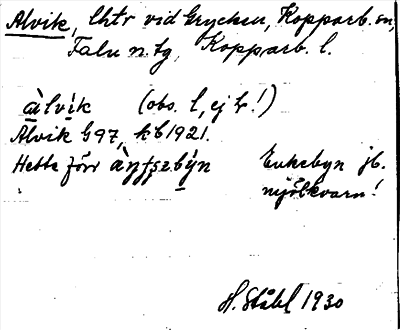 Alvik, lhtr vid Grycken, Kopparb. sn,
Falu n. tg, Kopparb. l.
àlvik (obs. l, ej ł!)
Alvik G97, kb 1921.
Hette förr Enkebyn jb.
mjölkvarn!
H. Ståhl 1930